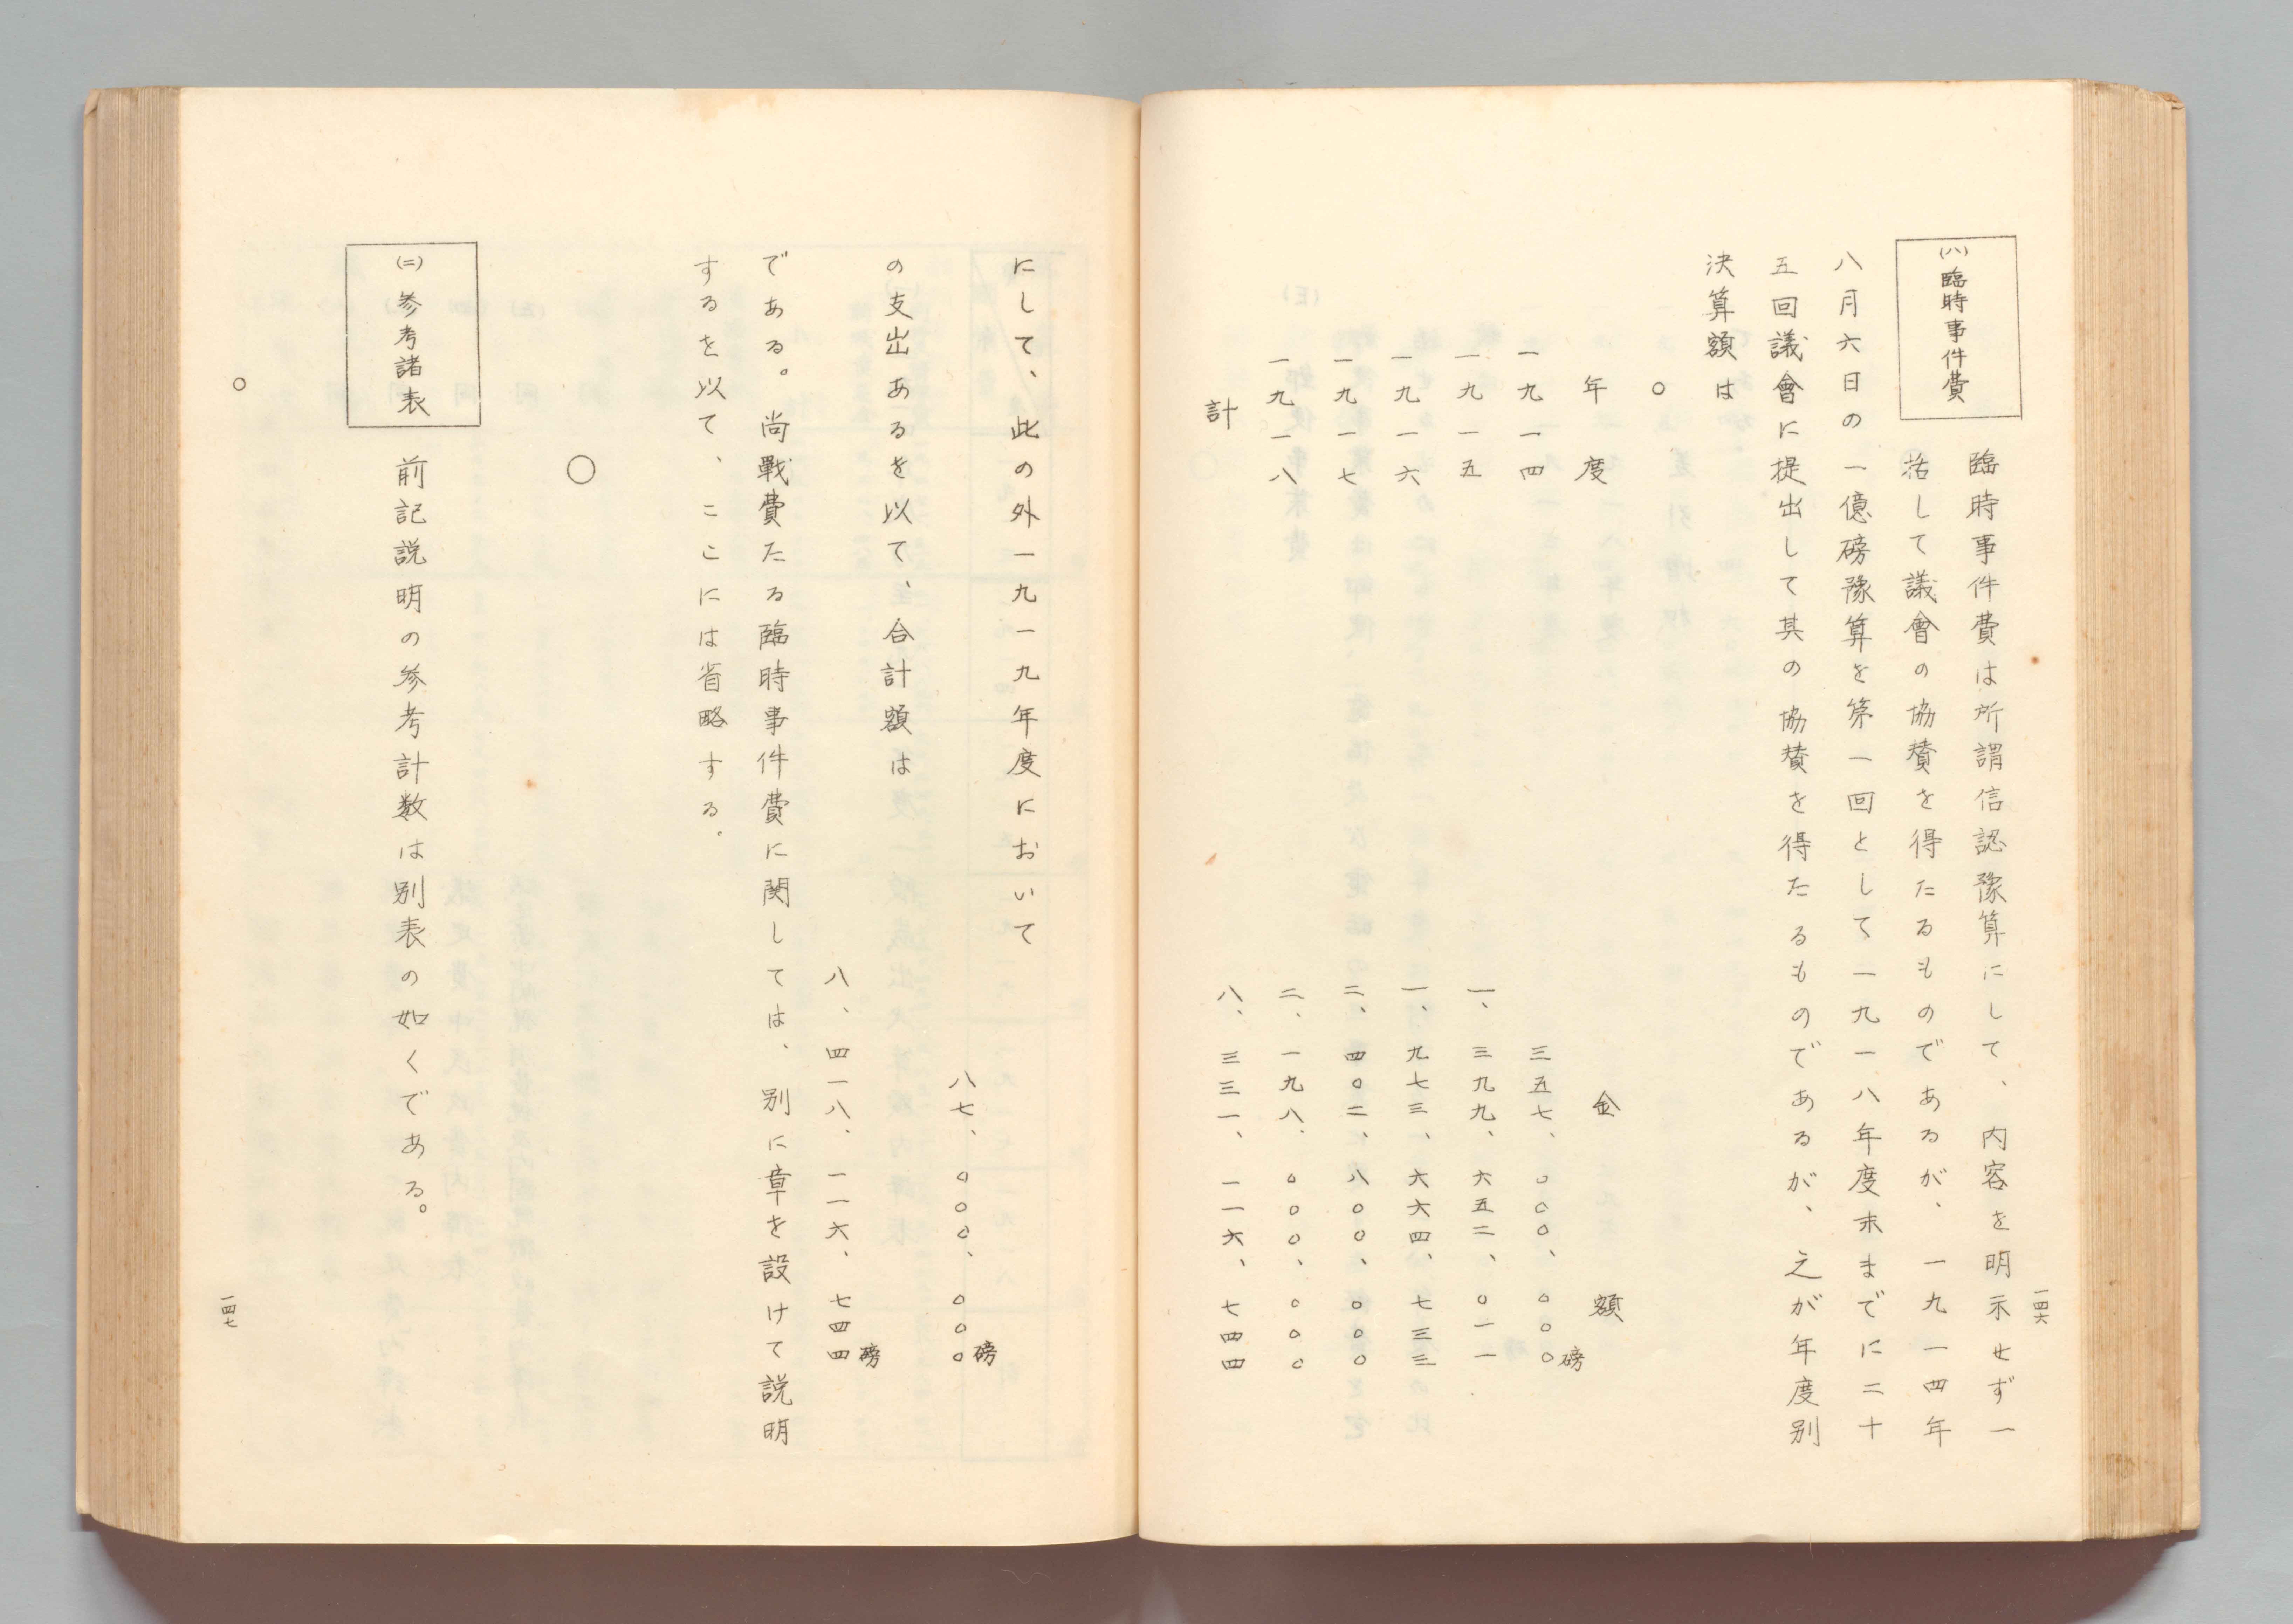 一四六
(ハ)臨時事件費
臨時事件費は所謂信認豫算にして、内容を明示せず一
括して議會の協賛を得たるものであるが、一九一四年
八月六日の一億磅豫算を第一回として一九一八年度末までに二十
五回議會に提出して其の協賛を得たるものであるが、之が年度別
決算額は
○
年度 金額
一九一四 三五七、〇〇〇、〇〇〇磅
一九一五 一、三九九、六五二、〇一一
一九一六 一、九七三、六六四、七三三
一九一七 二、四〇二、八〇〇、〇〇〇
一九一八 二、一九八、〇〇〇、〇〇〇
計 八、三三一、一一六、七四四
にして、此の外一九一九年度において
八七、〇〇〇、〇〇〇磅
の支出あるを以て、合計額は
八、四一八、一一六、七四四磅
である。尚戰費たる臨時事件費に関しては、別に章を設けて説明
するを以て、ここには省略する。
○
(ニ)参考諸表
前記説明の参考計数は別表の如くである。
○
一四七